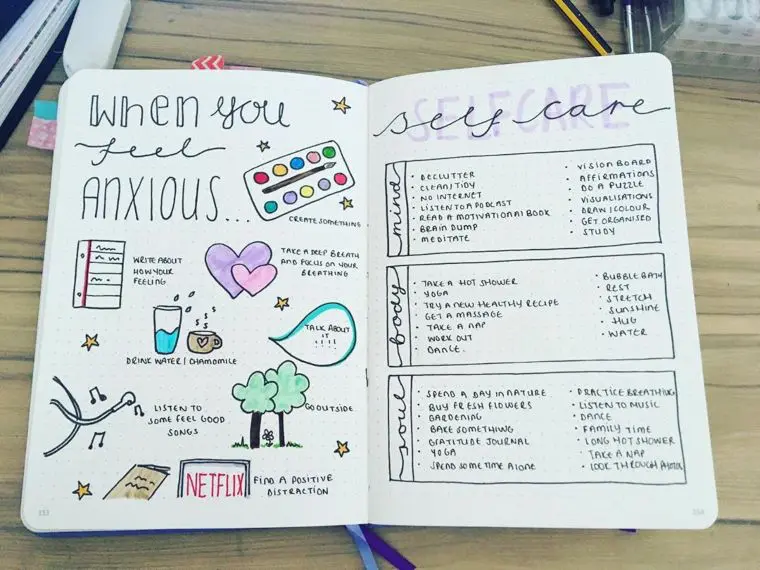 WHEN YOU
feel
ANXIOUS...
CREATE SOMETHING
WRITE ABOUT
HOW YOUR
FEELING
TAKE A DEEP BREATH
AND FOCUS ON YOUR
BREATHING
DRINK WATER | CHAMOMILE
TALK ABOUT
IT
!!!!
LISTEN TO
SOME FEEL GOOD
SONGS
GO OUTSIDE
NETFLIX
FIND A POSITIVE
DISTRACTION
153
SELFCARE
self care
mind
• DECLUTTER
• CLEAN/TIDY
• NO INTERNET
• LISTEN TO A PODCAST
• READ A MOTIVATIONAL BOOK
• BRAIN DUMP
• MEDITATE
• VISION BOARD
• AFFIRMATIONS
• DO A PUZZLE
• VISUALISATIONS
• DRAW/COLOUR
• GET ORGANISED
• STUDY
body
• TAKE A HOT SHOWER
• YOGA
• TRY A NEW HEALTHY RECIPE
• GET A MASSAGE
• TAKE A NAP
• WORK OUT
• DANCE.
• BUBBLE BATH
• REST
• STRETCH
• SUNSHINE
• HUG
• WATER
soul
• SPEND A DAY IN NATURE
• BUY FRESH FLOWERS
• GARDENING
• BAKE SOMETHING
• GRATITUDE JOURNAL
• YOGA
• SPEND SOME TIME ALONE
• PRACTICE BREATHING
• LISTEN TO MUSIC
• DANCE
• FAMILY TIME
• LONG HOT SHOWER
• TAKE A NAP
• LOOK THROUGH PHOTOS
154